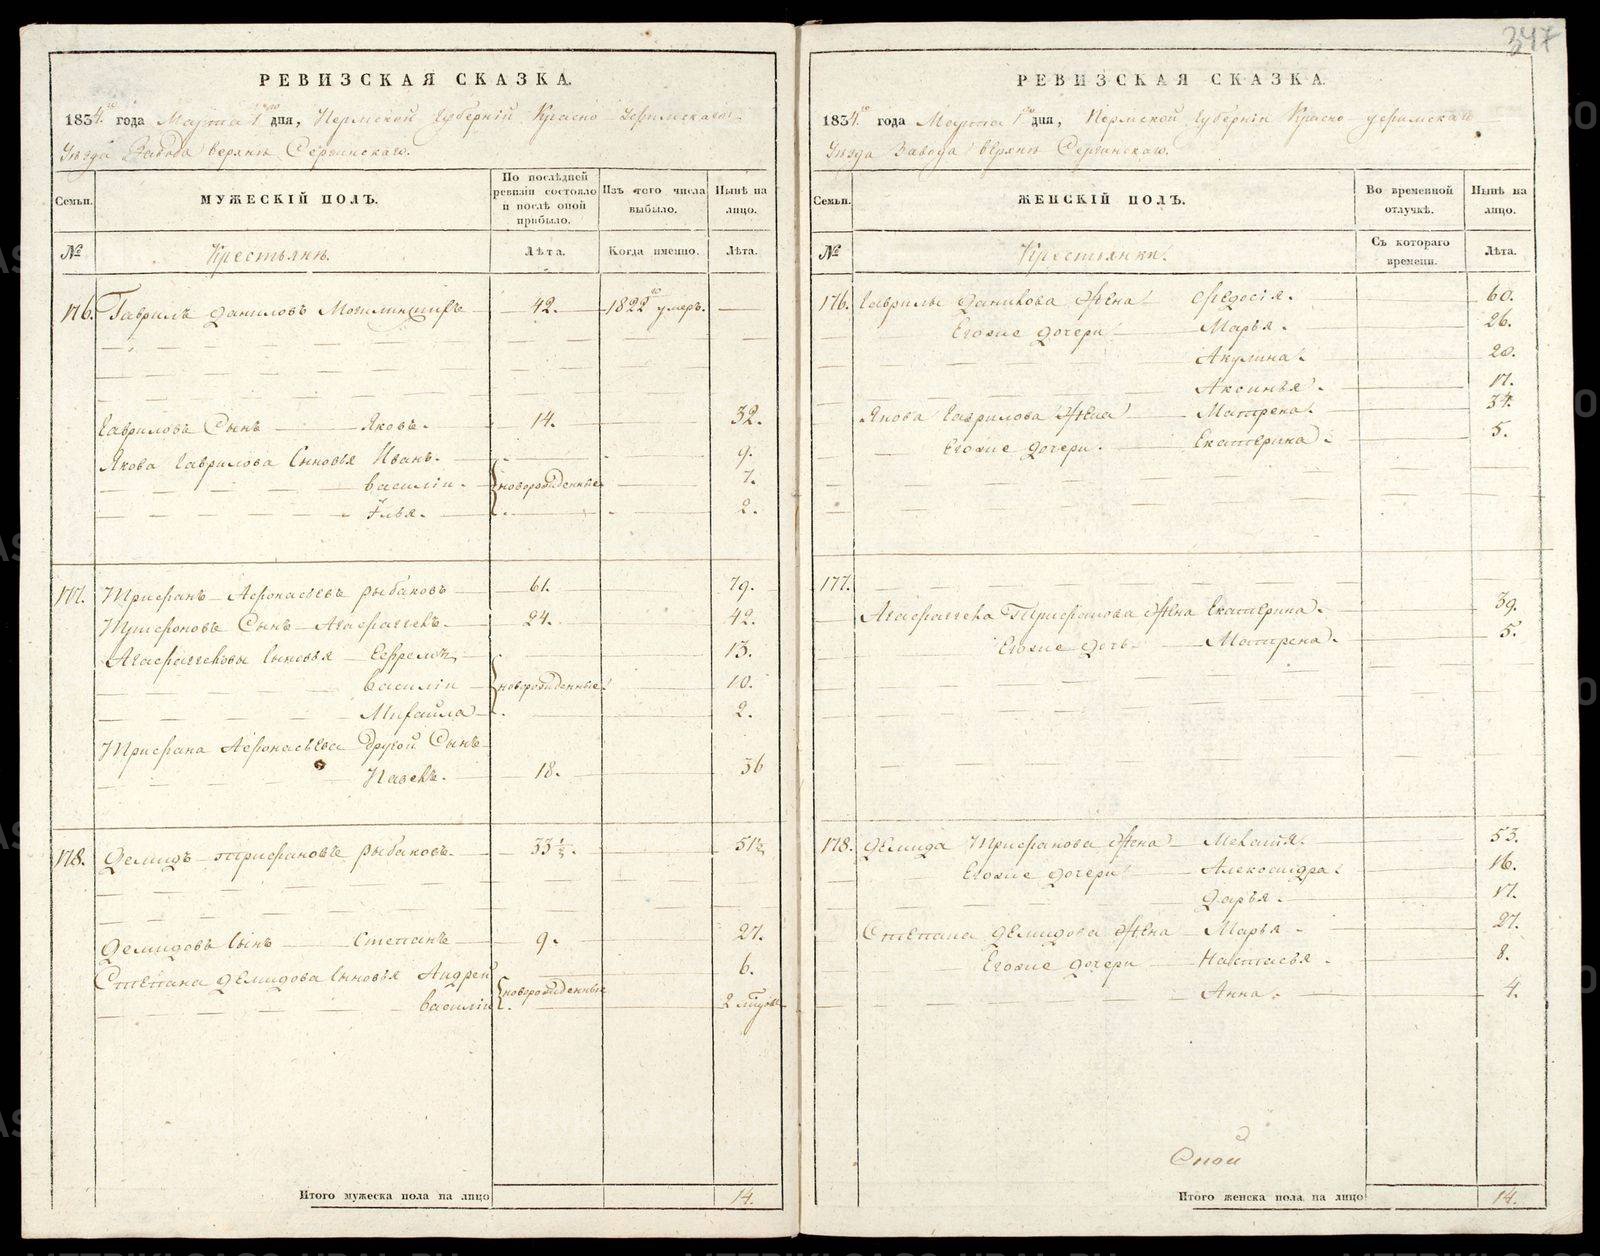 347
РЕВИЗСКАЯ СКАЗКА.
1834.го года Марта 1го дня, Пермской Губернїи Красно-Уфимскаго
Уѣзда Завода Верхне Сергинскаго.
Семьи.
МУЖЕСКІЙ ПОЛЪ.
По послѣдней ревизіи состояло и послѣ оной прибыло.
Изъ того числа выбыло.
Нынѣ на лицо.
№
Крестьяне.
Лѣта.
Когда именно.
Лѣта.
176. Гаврилъ Даниловъ 42. 1822го умеръ.
Гавриловъ Сынъ Яковъ. 14. 32.
Якова Гаврилова Сыновья Иванъ. 9.
Василій. новорожденные 7.
Илья. 2.
177. Трифанъ Афонасьевъ Рыбаковъ 61. 79.
Трифоновъ Сынъ Агафангелъ. 24. 42.
Агафангеловы Сыновья Ефремъ 13.
Василій новорожденные 10.
Михайла 2.
Трифана Афонасьева Другой Сынъ
Павелъ. 18. 36
178. Демидъ Трифановъ Рыбаковъ. 33½. 51½
Демидовъ Сынъ Степанъ 9. 27.
Степана Демидова Сыновья Андрей 6.
Василій новорожденные 2
Итого мужеска пола на лицо 14.
РЕВИЗСКАЯ СКАЗКА.
1834.го года Марта 1го дня, Пермской Губернїи Красно-уфимскаго
Уѣзда Завода Верхне Сергинскаго.
Семьи.
ЖЕНСКІЙ ПОЛЪ.
Во временной отлучкѣ.
Нынѣ на лицо.
№
Крестьянки.
Съ котораго времени.
Лѣта.
176. Гаврилы Данилова Жена Федосія. 60.
Егожие дочери Марья. 26.
Акулина. 20.
Аксинья. 17.
Якова Гаврилова Жена Матрена. 34.
Егожие дочери. Екатерина. 5.
177.
Агафангела Трифанова Жена Екатерина. 39.
Егожие дочь Матрена. 5.
178. Демида Трифанова Жена Меланія. 53.
Егожие дочери Александра. 16.
Дарья. 17.
Степана Демидова Жена Марья 27.
Егожие дочери Настасья. 8.
Анна. 4.
Итого женска пола на лицо 14.